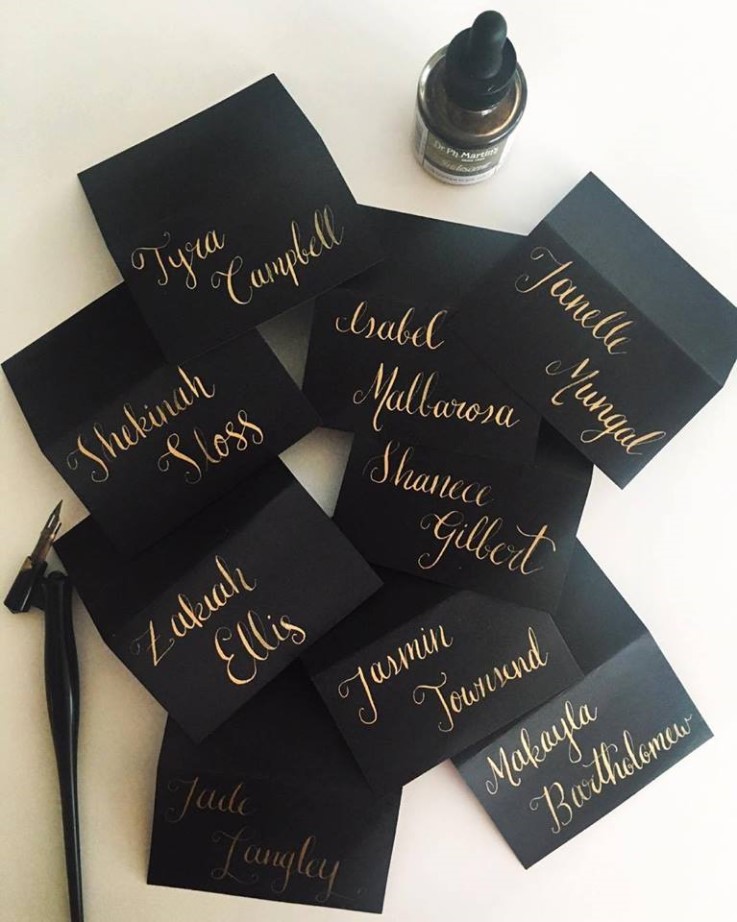 Dr. Ph. Martin's
Iridescent
Tyra
Campbell
Isabel
Malbarosa
Janelle
Mungal
Shekinah
Sloss
Shanece
Gilbert
Zakiah
Ellis
Jasmin
Townsend
Makayla
Bartholomew
Jade
Langley